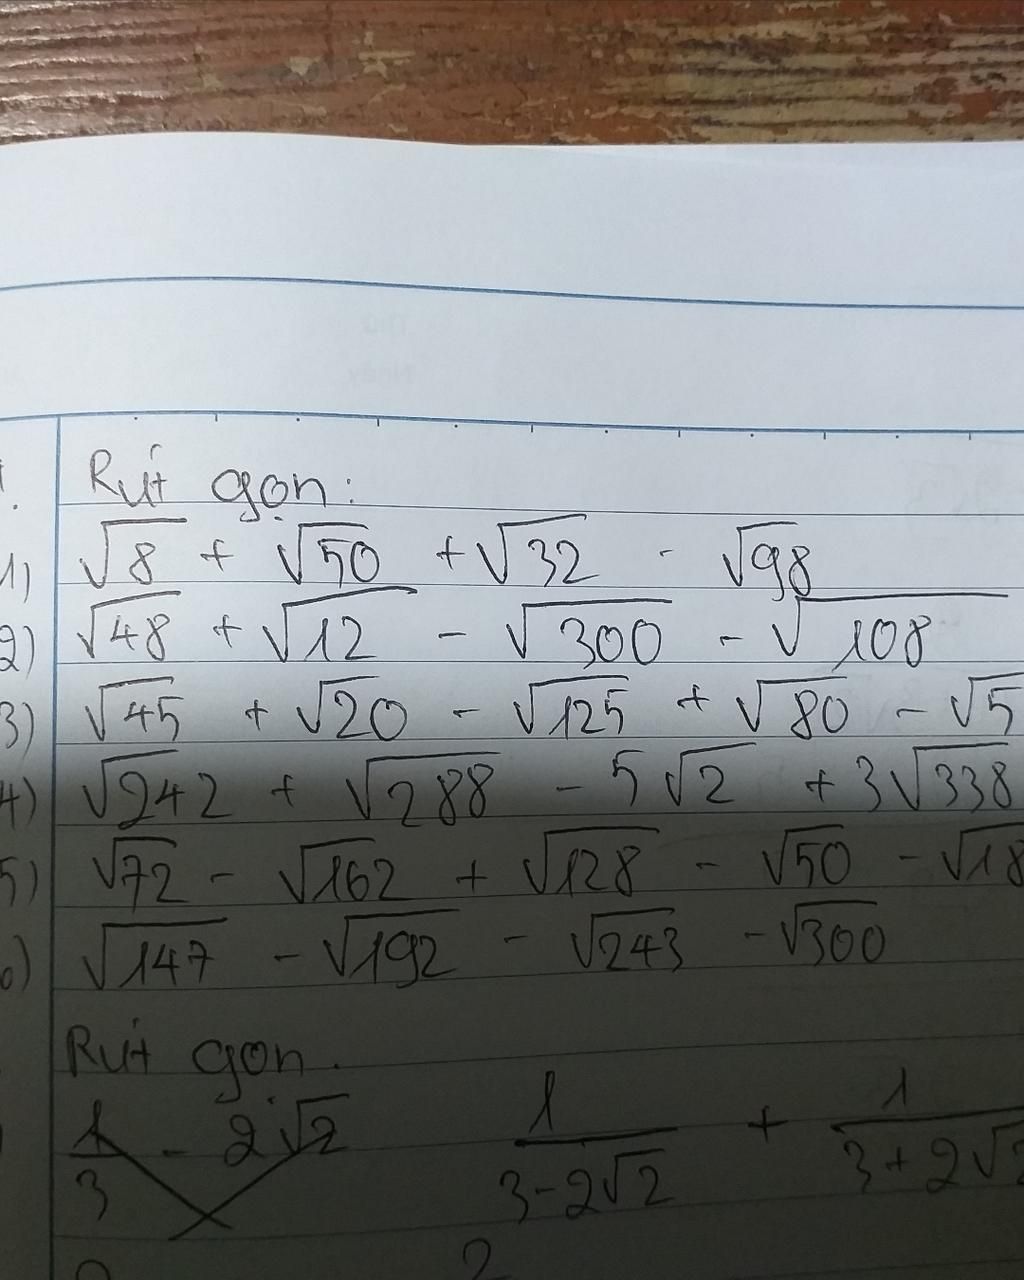 Rút gọn:
1) √8 + √50 + √32 - √98
2) √48 + √12 - √300 - √108
3) √45 + √20 - √125 + √80 - √5
4) √242 + √288 - 5√2 + 3√338
5) √72 - √162 + √128 - √50 - √18
6) √147 - √192 - √243 - √300
Rút gọn.
1/3 - 2√2 1/(3-2√2) + 1/(3+2√2)